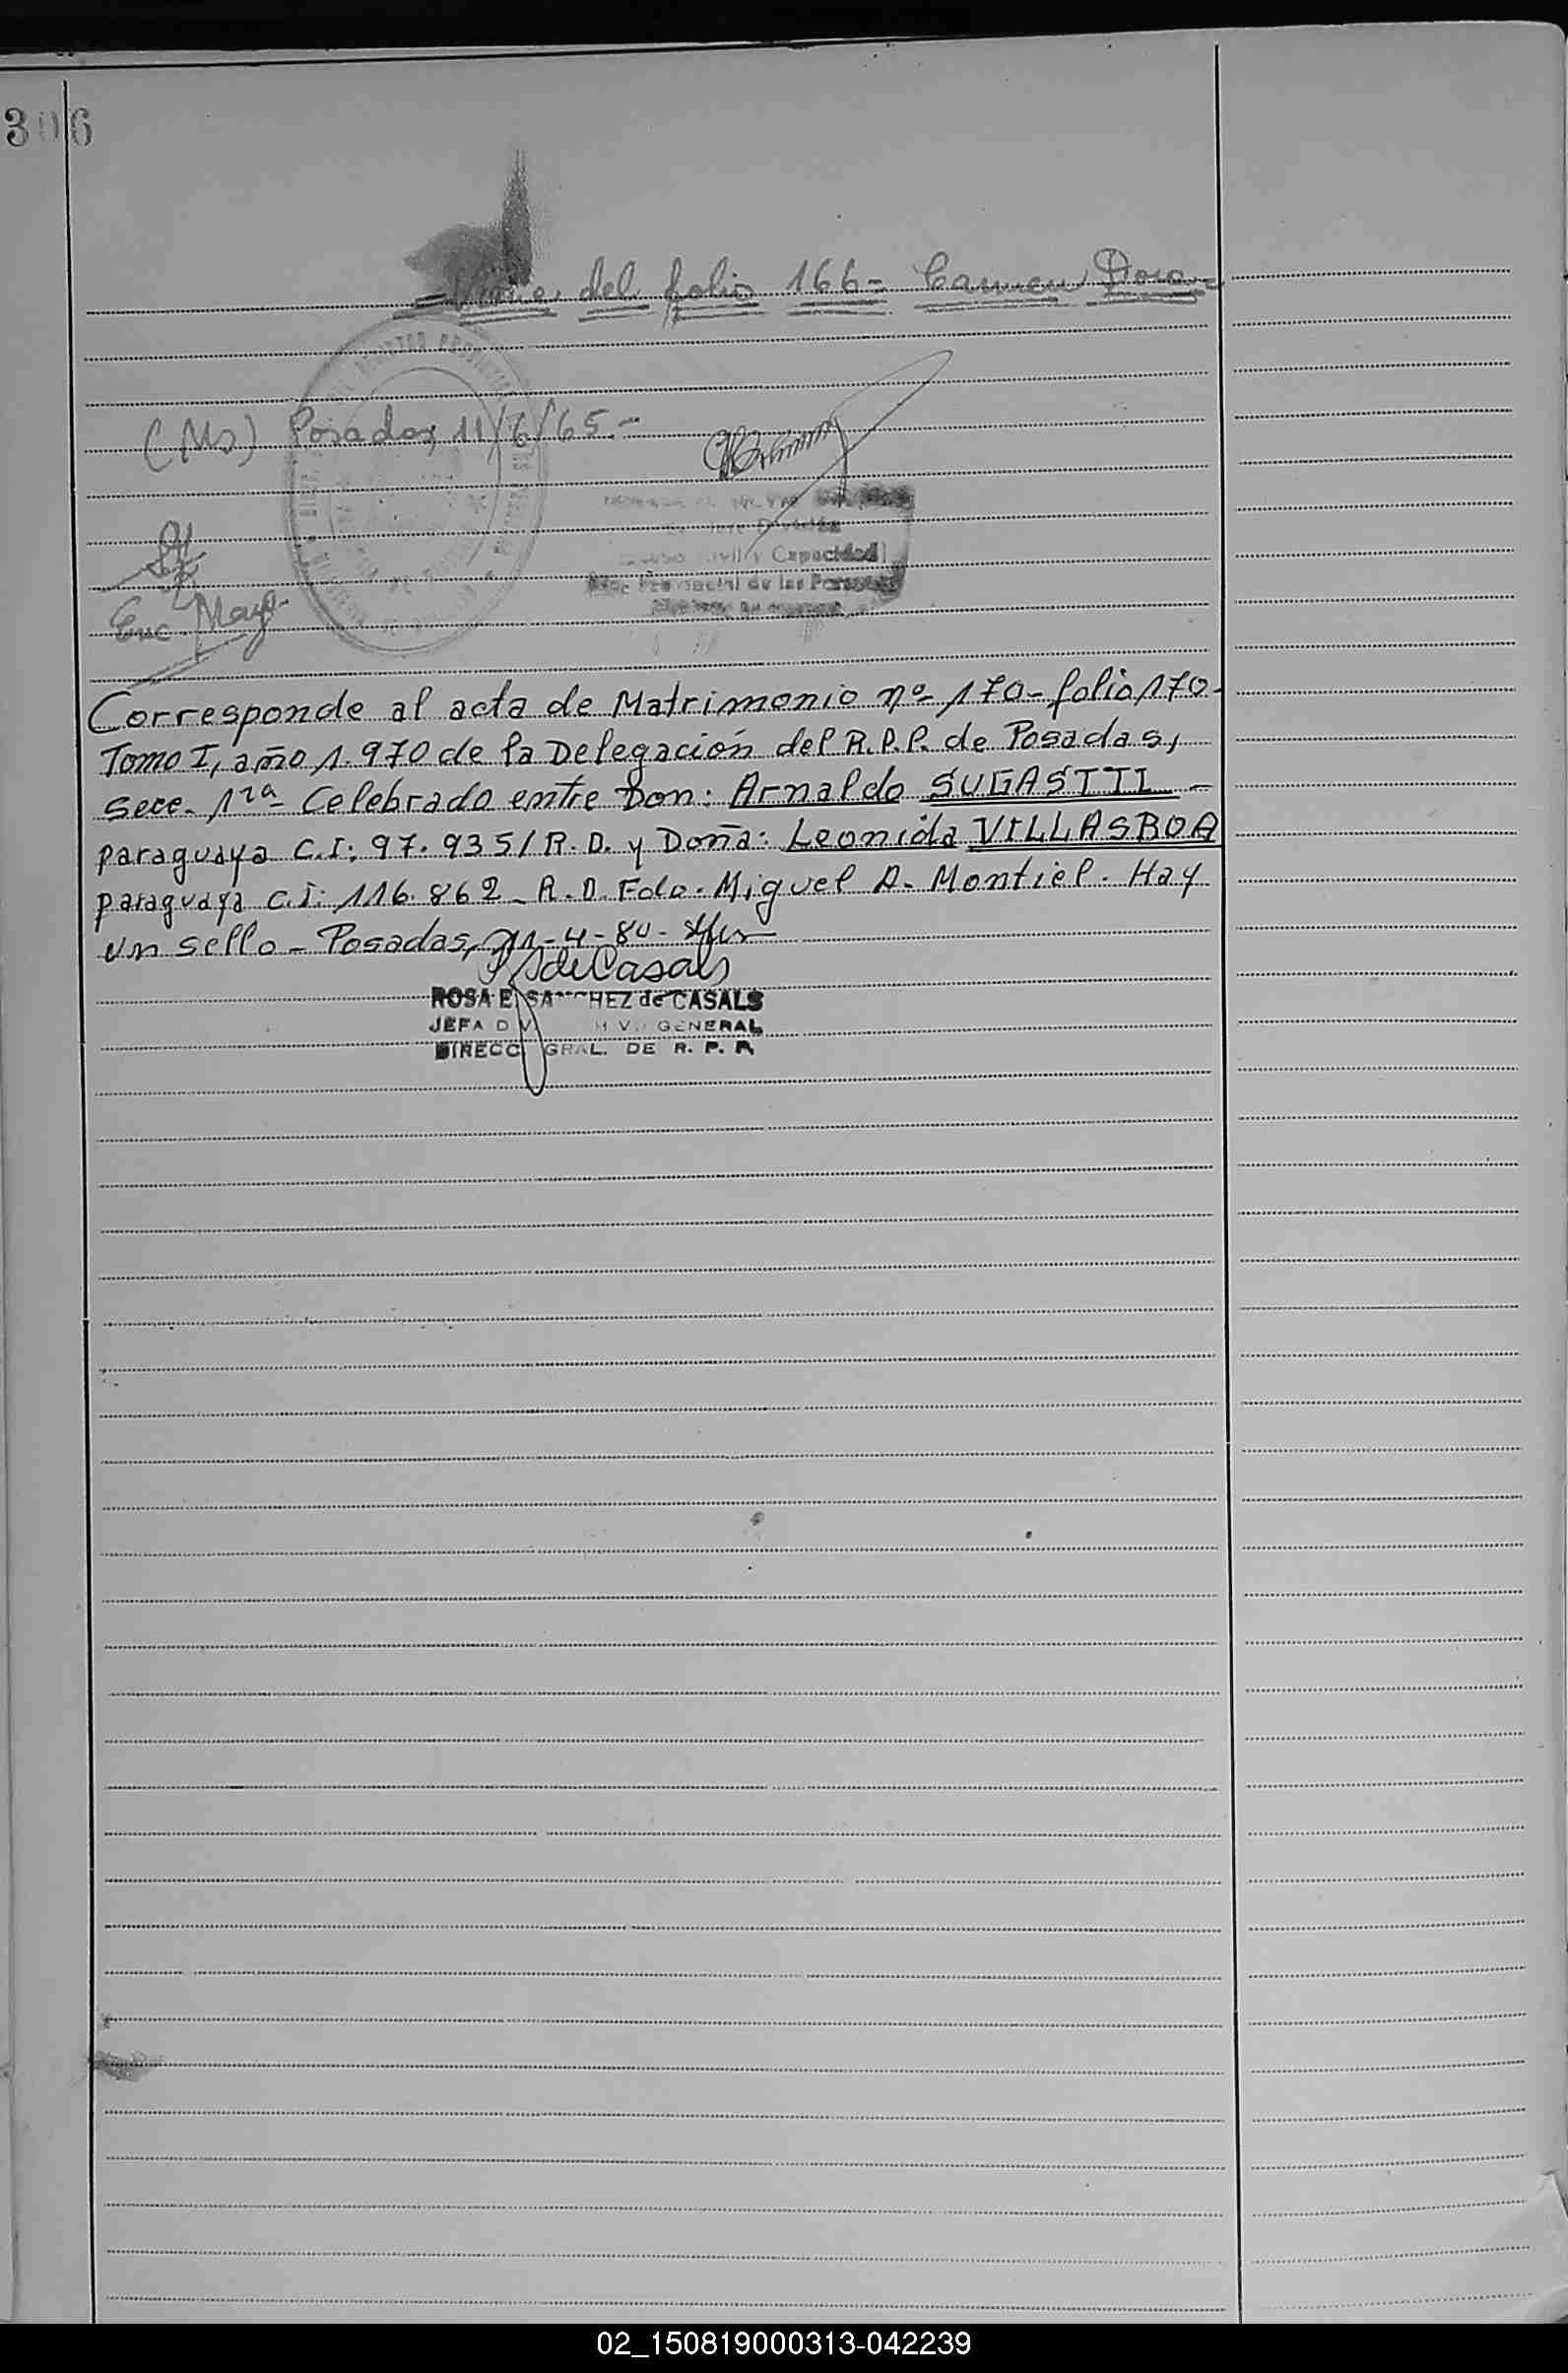 306
Viene del folio 166- Carmen Dora-
(Ms) Posadas, 11/6/65.-
División
Civil y Capacidad
Provincial de las Personas
Enc. Maya.
Corresponde al acta de Matrimonio nº- 170- folio 170-
Tomo I, año 1.970 de la Delegación del R.P.P. de Posadas,
Secc. 1ra- Celebrado entre Don: Arnaldo SUGASTTI -
paraguaya C.I: 97.935/R.D. y Doña: Leonida VILLASBOA
paraguaya C.I: 116.862- R.D. Fdo. Miguel A. Montiel. Hay
un sello- Posadas, 21-4-80-
SdeCasals
ROSA E. SANCHEZ de CASALS
JEFA GENERAL
DIRECC GRAL. DE R. P. P.
02_150819000313-042239